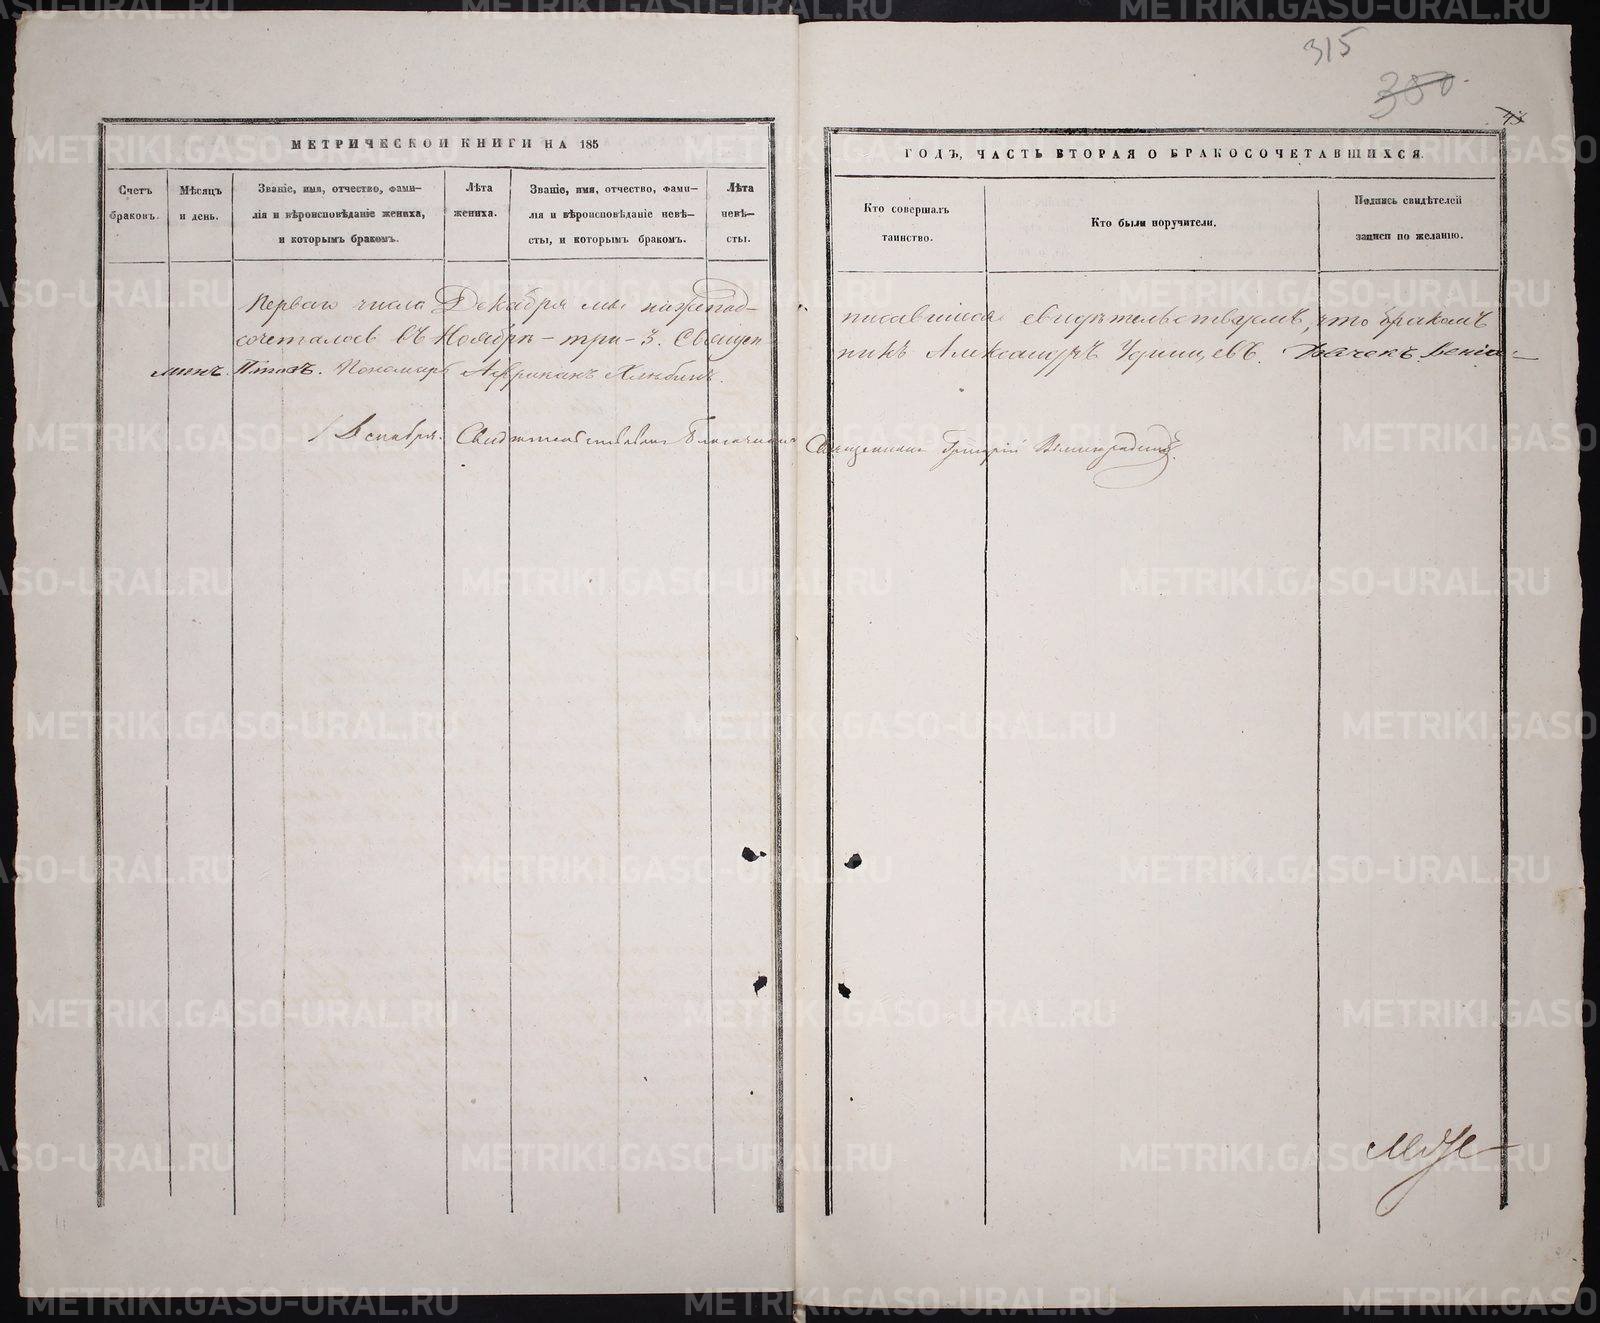 315
380
МЕТРИЧЕСКОЙ КНИГИ НА 185
ГОДЪ, ЧАСТЬ ВТОРАЯ О БРАКОСОЧЕТАВШИХСЯ.
Счетъ
браковъ.
Мѣсяцъ
и день.
Званіе, имя, отчество, фами-
лія и вѣроисповѣданіе жениха,
и которымъ бракомъ.
Лѣта
жениха.
Званіе, имя, отчество, фами-
лія и вѣроисповѣданіе невѣ-
сты, и которымъ бракомъ.
Лѣта
невѣ-
сты.
Кто совершалъ
таинство.
Кто были поручители.
Подпись свидѣтелей
записи по желанію.
Перваго числа Декабря мы нижепод-
писавшіися свидѣтельствуемъ, что бракомъ
сочеталось въ Ноябрѣ - три - 3. Священ
никъ Александръ Удинцевъ. Дьячекъ Веніа-
минъ. Пономарь Африканъ Хлѣбинъ.
1 Декабря. Свидѣтельствовалъ Благочинный Священникъ Григорій
METRIKI.GASO-URAL.RU